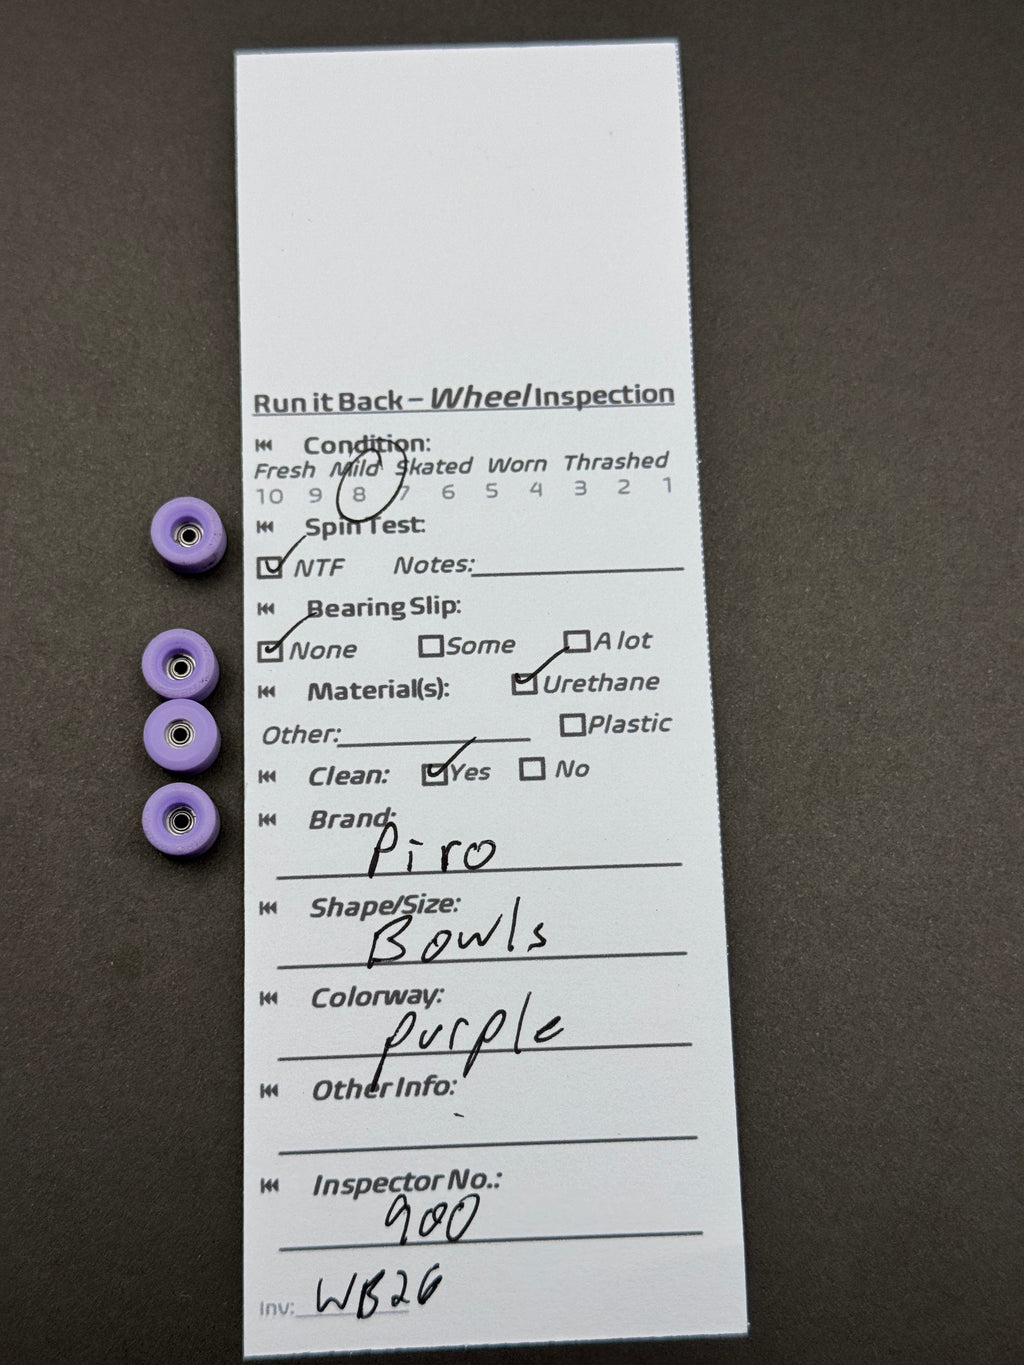 Run it Back – Wheel Inspection
Condition:
Fresh Mild Skated Worn Thrashed
10 9 8 7 6 5 4 3 2 1
Spin Test:
NTF Notes:
Bearing Slip:
None Some A lot
Material(s): Urethane
Other: Plastic
Clean: Yes No
Brand:
Piro
Shape/Size:
Bowls
Colorway:
purple
Other Info:
Inspector No.:
900
Inv: WB26